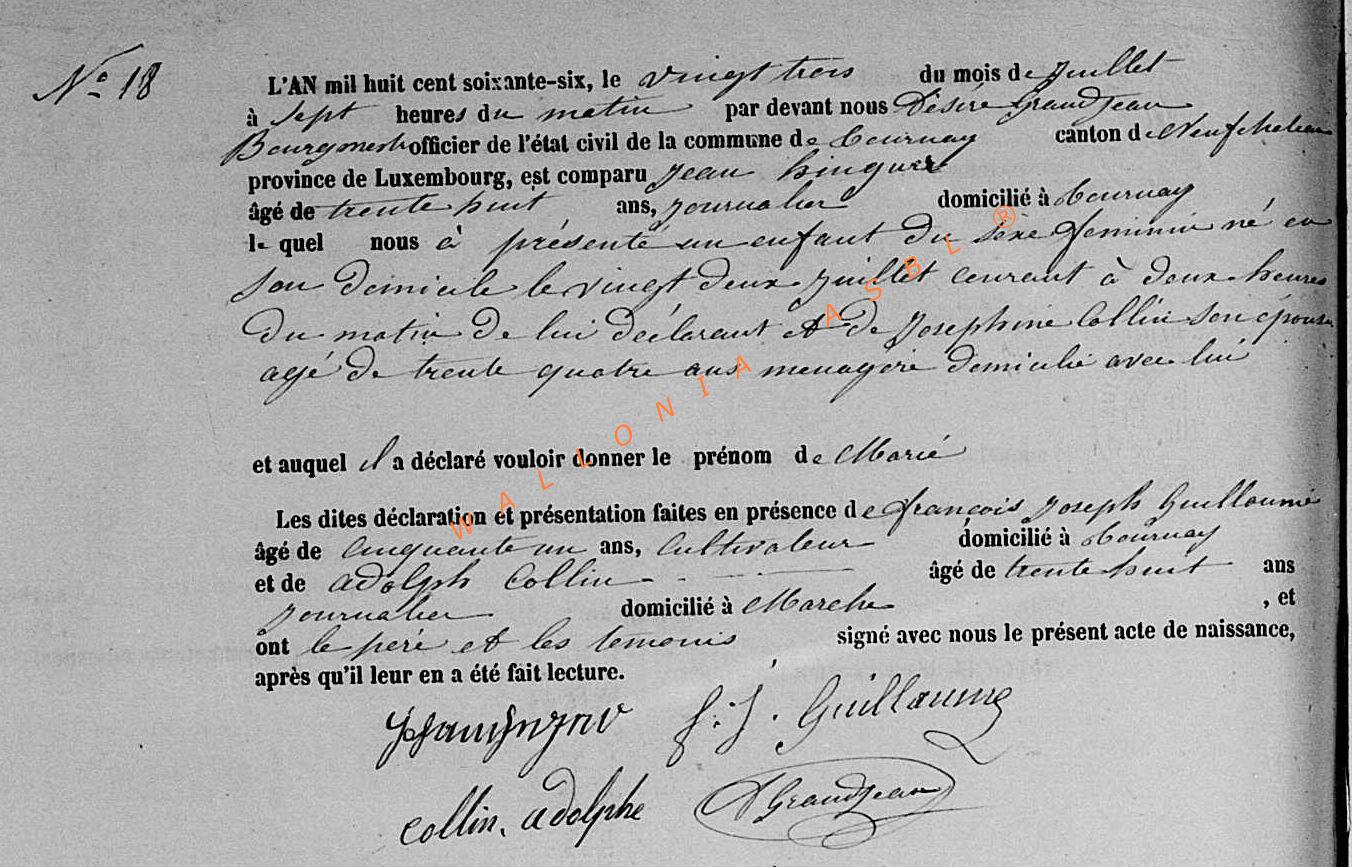 No 18
L'AN mil huit cent soixante-six, le vingt trois du mois de juillet
à sept heures du matin par devant nous Désiré Grandjean
Bourgmestre officier de l'état civil de la commune de Tournay canton de Neufchateau
province de Luxembourg, est comparu Jean
âgé de trente huit ans, journalier domicilié à Tournay
le quel nous à présenté un enfant du sexe feminin né en
son domicile le vingt deux juillet courant à deux heures
du matin de lui déclarant et de Josephine Collin son épouse
agé de trente quatre ans menagére domicilié avec lui
et auquel il a déclaré vouloir donner le prénom de Marie
Les dites déclaration et présentation faites en présence de françois Joseph Guillaume
âgé de cinquante un ans, cultivateur domicilié à Tournay
et de adolph Collin âgé de trente huit ans
journalier domicilié à Marche , et
ont le pére et les temoins signé avec nous le présent acte de naissance,
après qu'il leur en a été fait lecture.
f. j. Guillaume
collin. adolphe Grandjean
WALLONIA ASBL ®